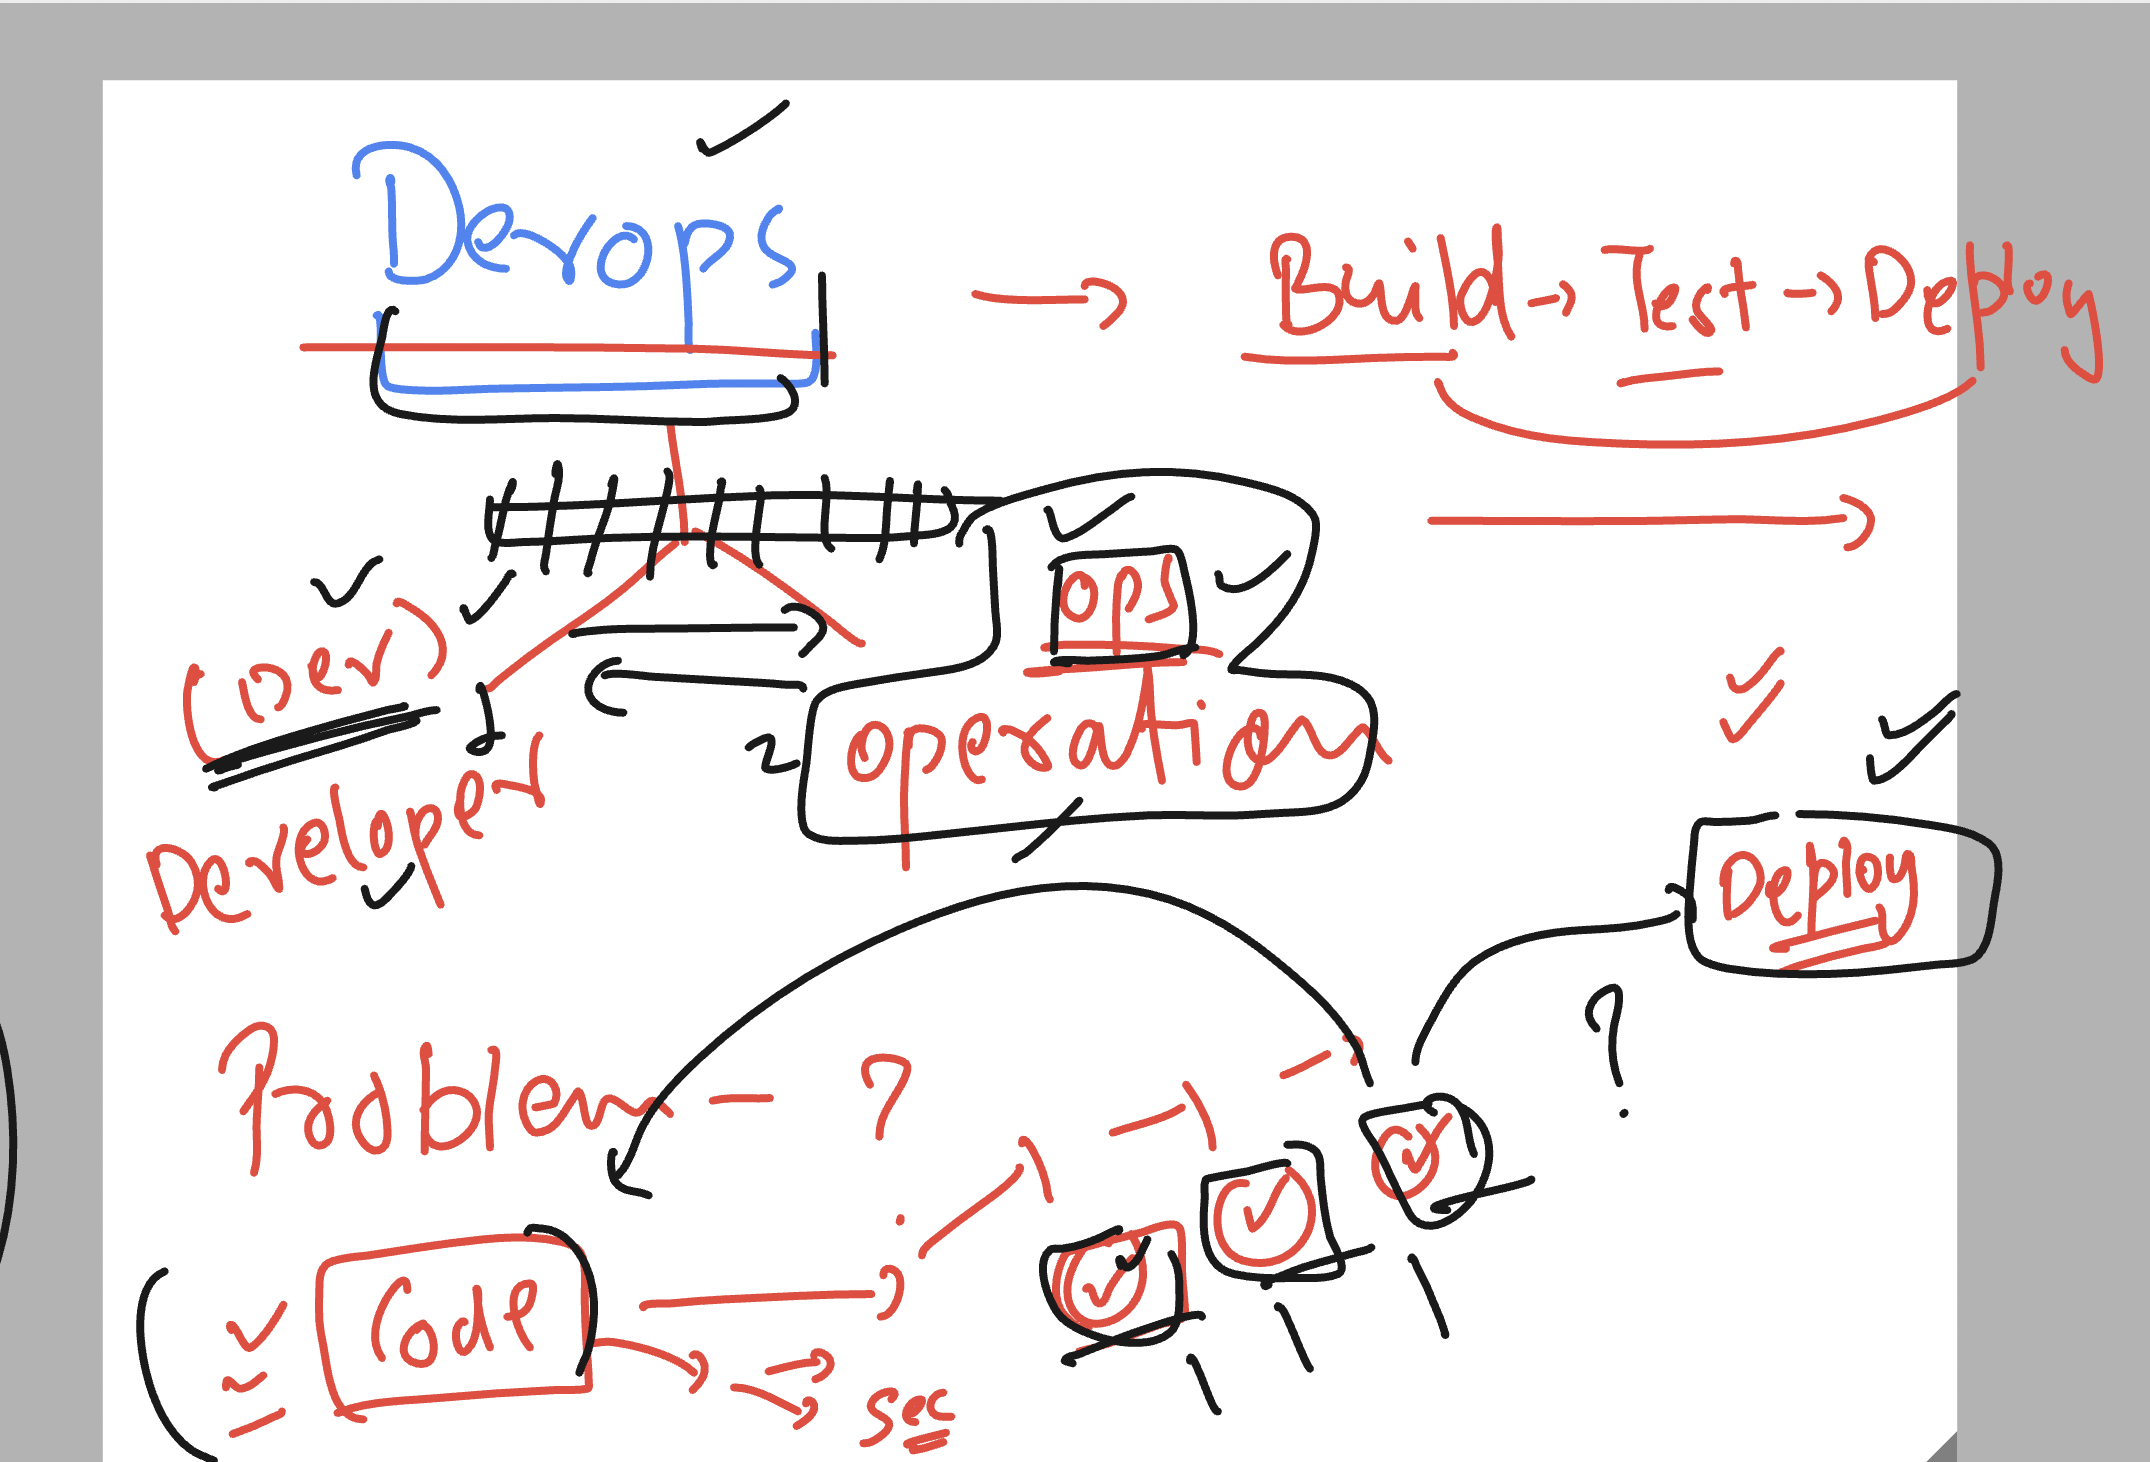 Devops → Build → Test → Deploy
(Dev) ops
Developer 1 2 operation
Deploy
Problem - ? ?
Code
sec